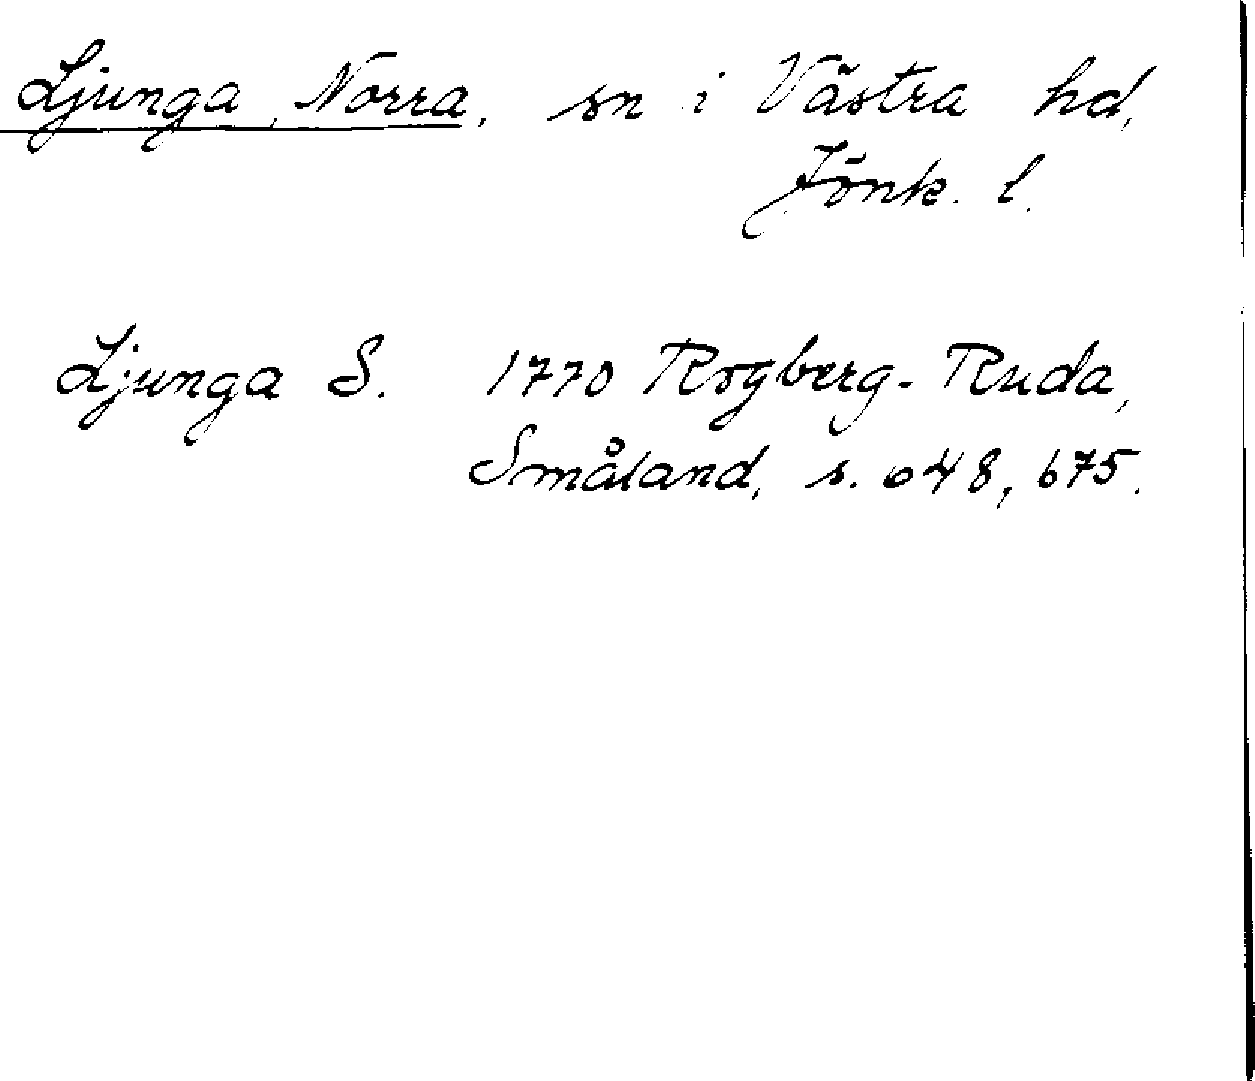 Ljunga, Norra, sn i Västra hd,
Jönk. l.
Ljunga S. 1770 Rogberg-Ruda,
Småland, s. 648, 675.